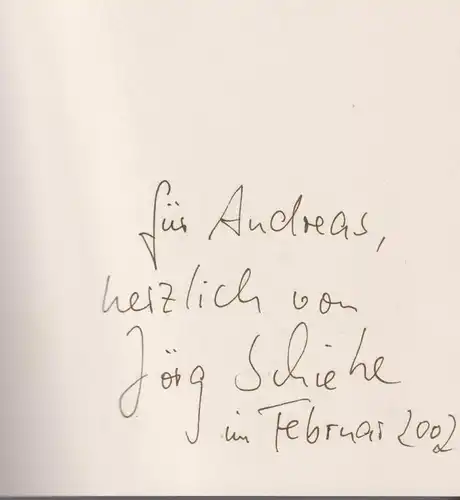 für Andreas,
herzlich von
Jörg Schieke
im Februar 2002